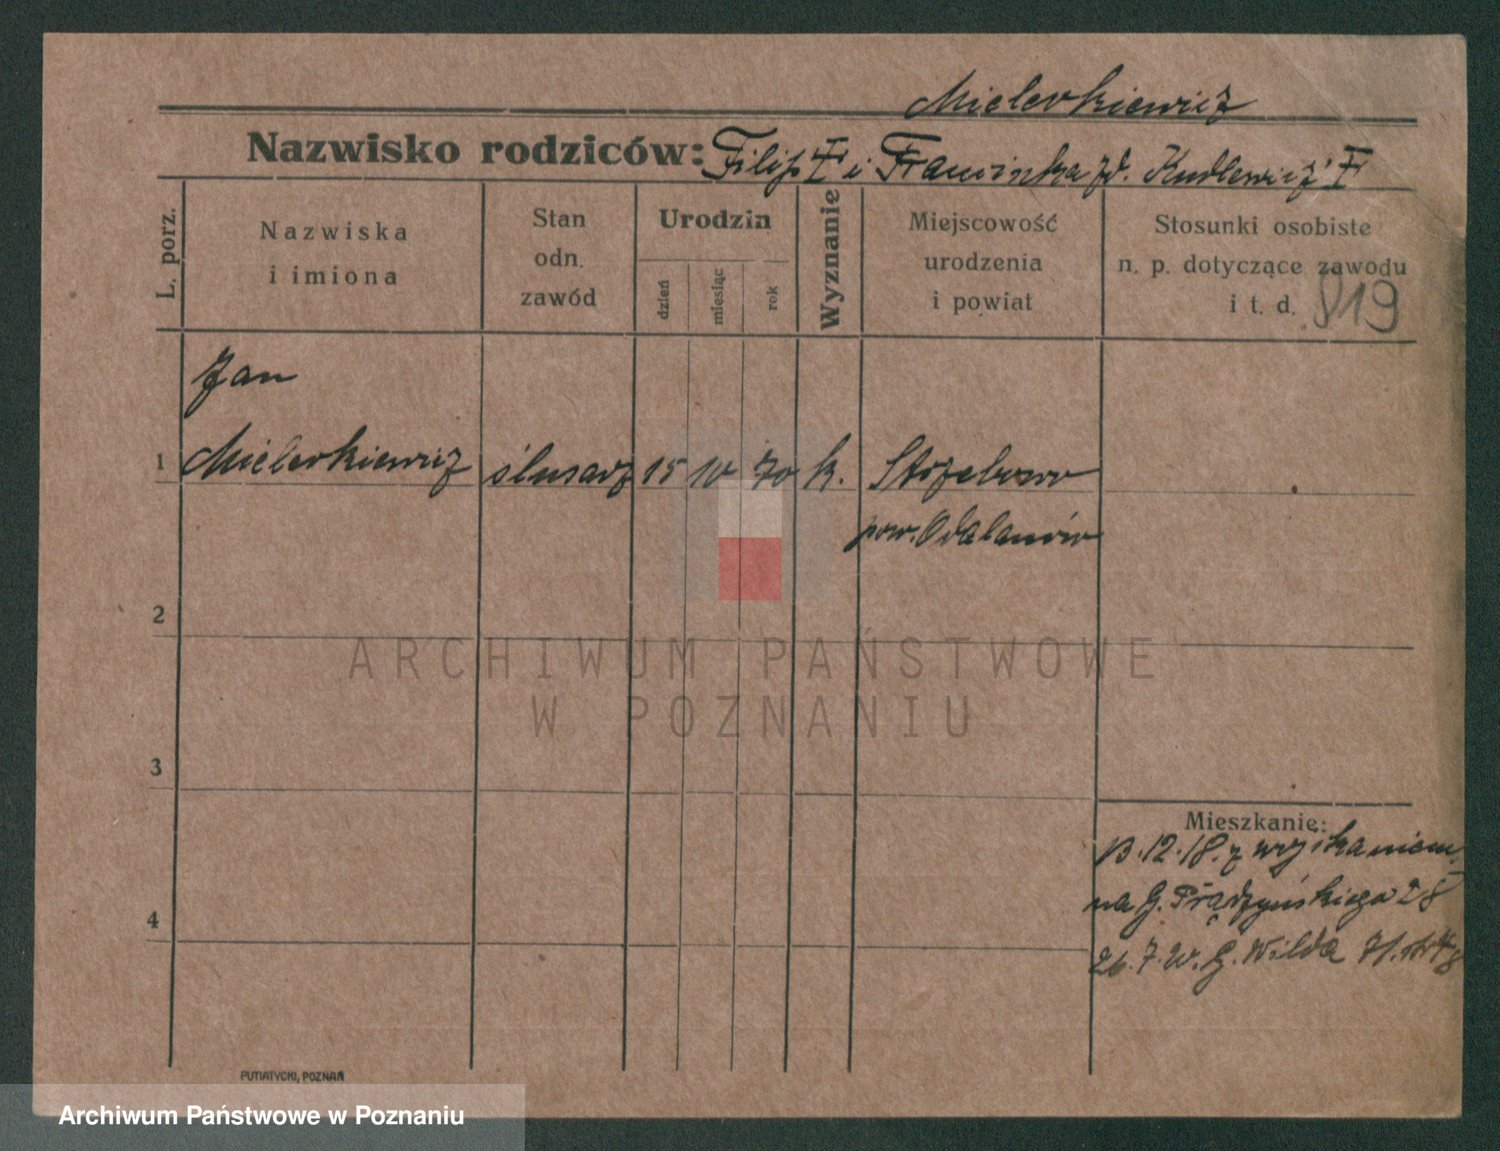 Mielerkiewicz
Nazwisko rodziców: Filip i Franciszka zd. Kudlewicz
L. porz.
Nazwiska
i imiona
Stan
odn.
zawód
Urodzin
dzień
miesiąc
rok
Wyznanie
Miejscowość
urodzenia
i powiat
Stosunki osobiste
n. p. dotyczące zawodu
i t. d. 819
Jan
1 Mielerkiewicz ślusarz 15 10 70 k.
pow. Odalanów
2
3
4
Mieszkanie:
13.12.18. z
na G. Prądzyńskiego 28
26.7. G. Wilda 71.
PUTIATYCKI, POZNAŃ
ARCHIWUM PAŃSTWOWE
W POZNANIU
Archiwum Państwowe w Poznaniu